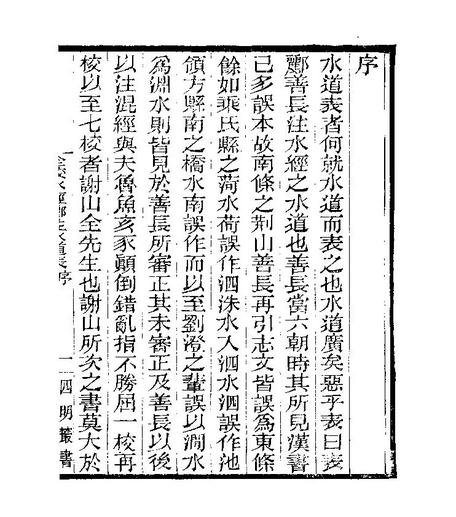 序
水道表者何就水道而表之也水道廣矣惡乎表曰表
酈善長注水經之水道也善長當六朝時其所見漢書
已多誤本故南條之荆山善長再引志文皆誤為東條
餘如乘氏縣之菏水荷誤作泗洙水入泗水泗誤作池
領方縣南之橋水南誤作而以至劉澄之輩誤以澗水
為淵水則皆見於善長所審正其未審正及善長以後
以注混經與夫魯魚亥豕顛倒錯亂指不勝屈一校再
校以至七校者謝山全先生也謝山所次之書莫大於
四明叢書